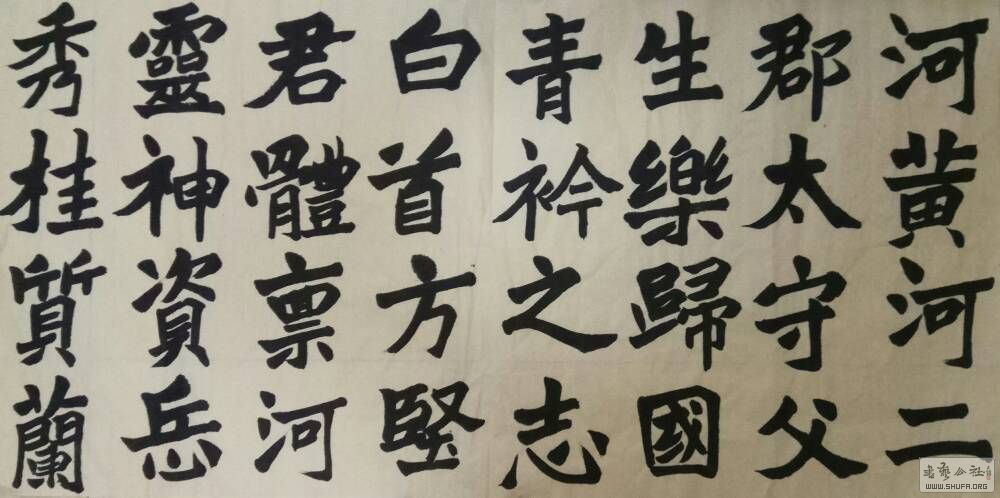 河黄河二
郡太守父
生樂歸國
青衿之志
白首方堅
君體禀河
靈神資岳
秀桂質蘭
书艺公社
WWW.SHUFA.ORG